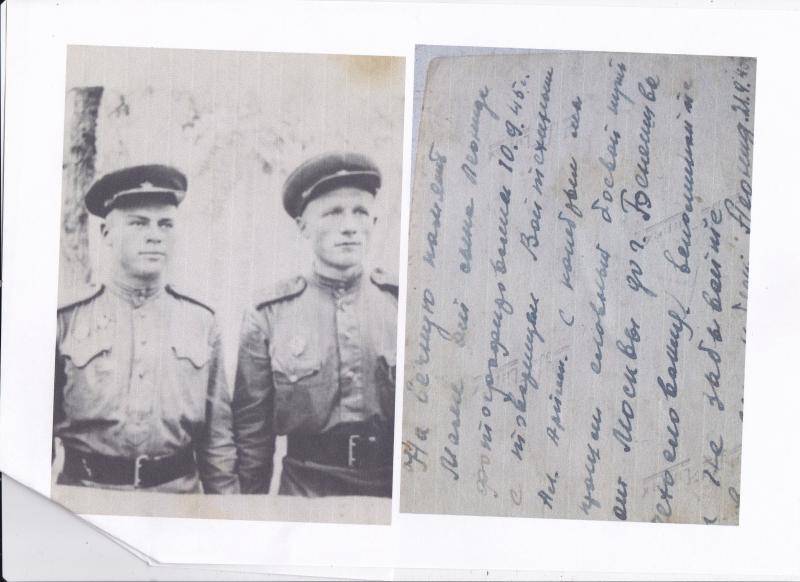 На вечную память
Маме от сына Леонида
фотографировался 10.9.45 г.
с товарищем Войтехиным
Ал. Архип. с которым мы
прошли славный боевой путь
от Москвы до г.
чехословакия, вспоминайте
и не забывайте
Леонид 21.9.45